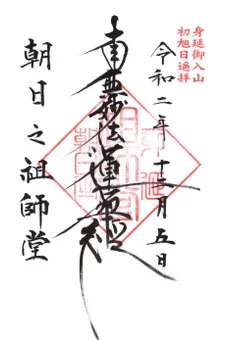 身延御入山
初旭日遥拝
令和二年十二月五日
南無妙法蓮華経
朝日之祖師堂